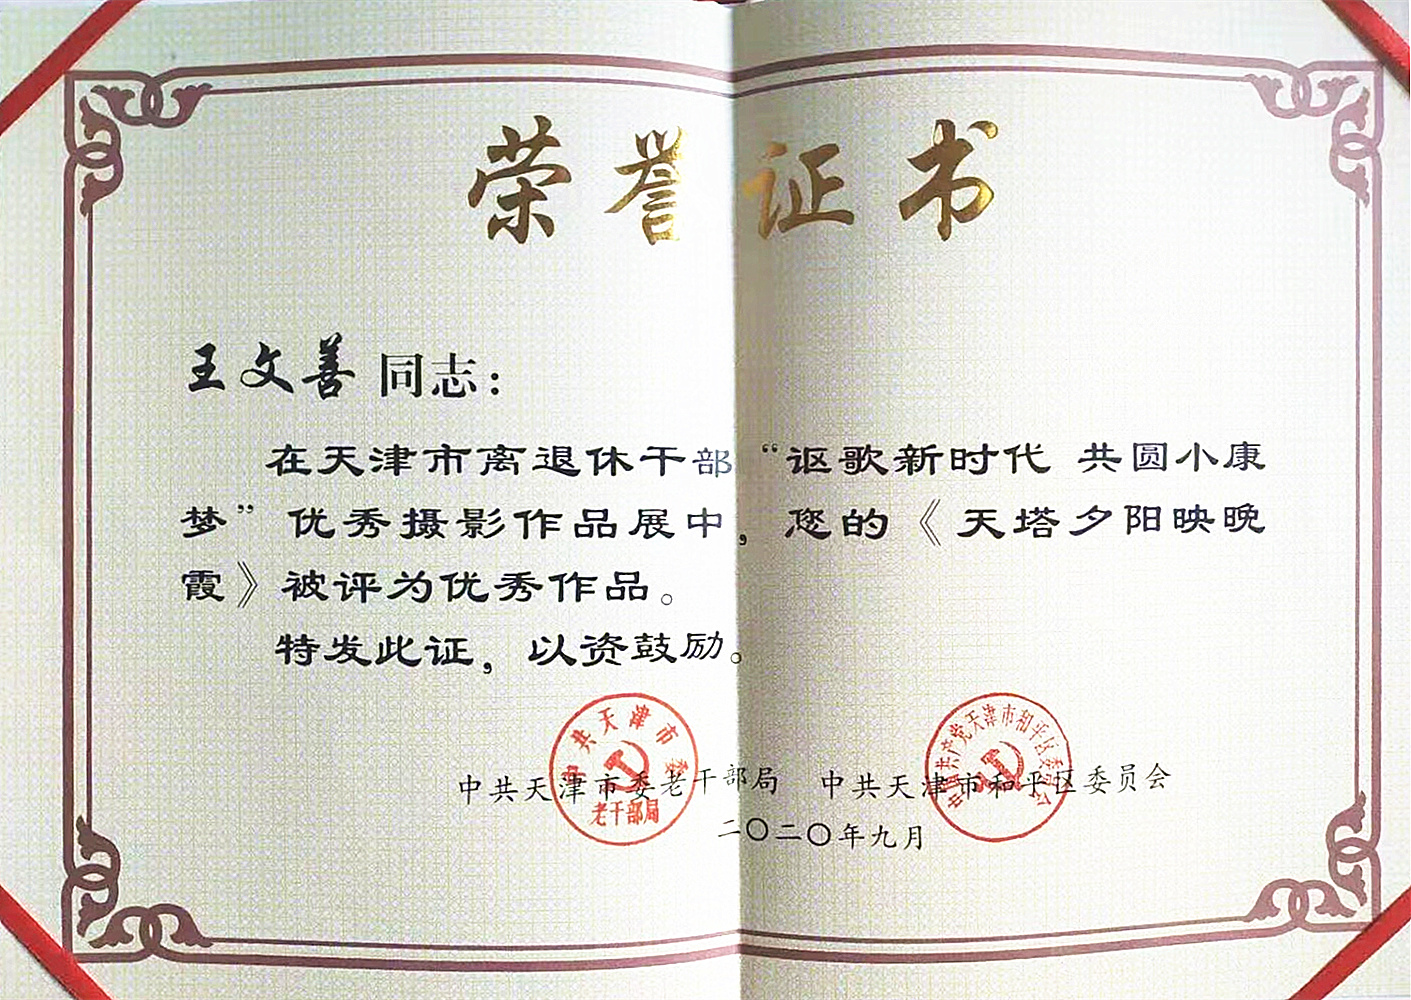 荣誉证书
王文善 同志：
在天津市离退休干部“讴歌新时代 共圆小康
梦”优秀摄影作品展中，您的《天塔夕阳映晚
霞》被评为优秀作品。
特发此证，以资鼓励。
中共天津市委老干部局 中共天津市和平区委员会
二〇二〇年九月
中共天津市委
老干部局
中国共产党天津市和平区委员会